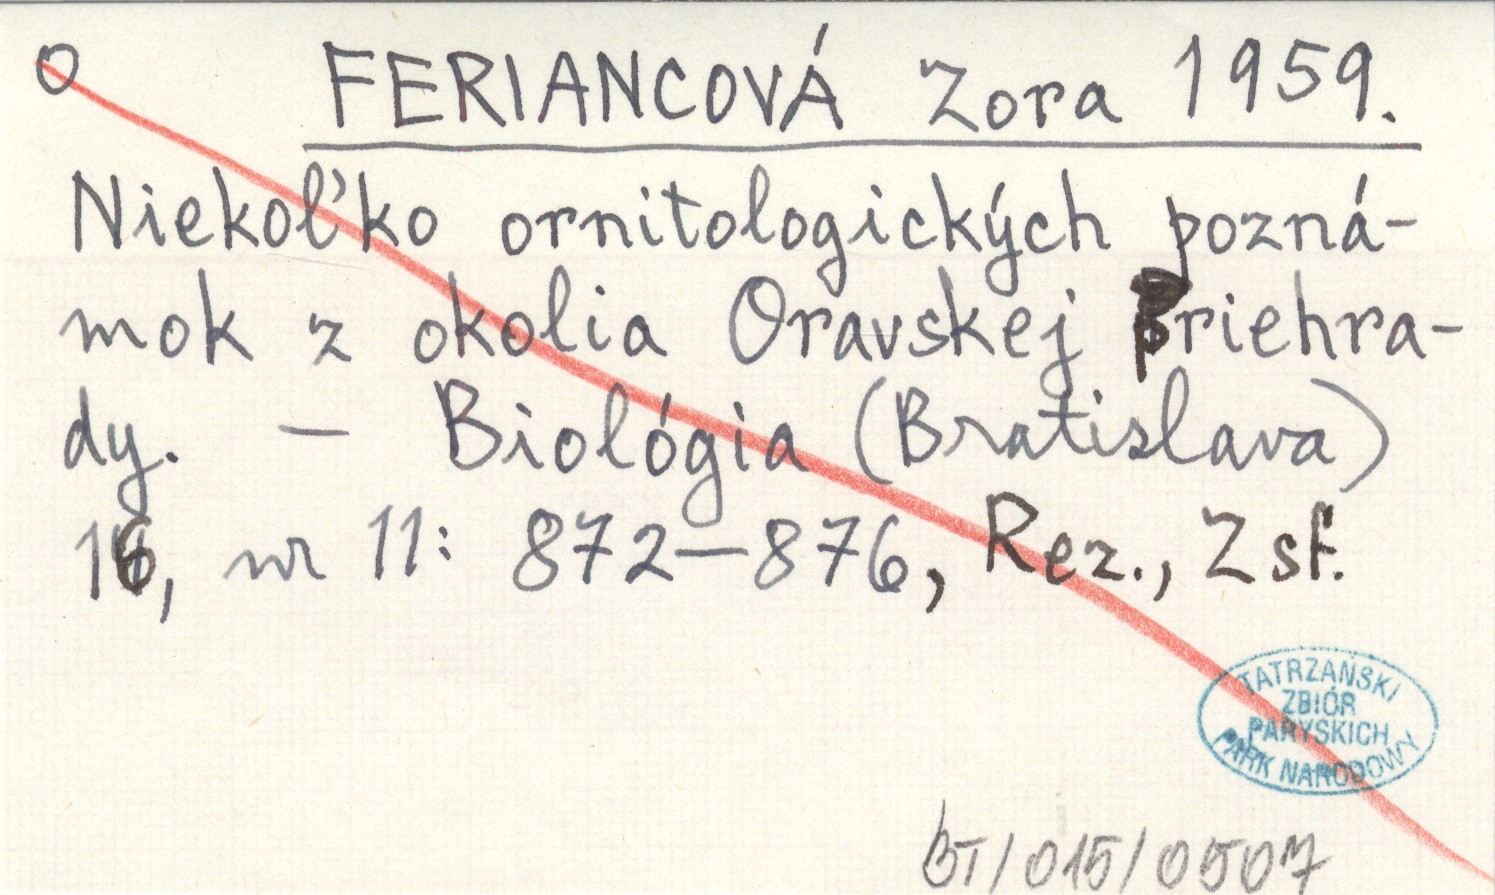 O FERIANCOVÁ Zora 1959.
Niekoľko ornitologických pozná-
mok z okolia Oravskej priehra-
dy. — Biológia (Bratislava)
16, nr 11: 872—876, Rez., Zsf.
TATRZAŃSKI
ZBIÓR
PARYSKICH
PARK NARODOWY
BT/015/0507